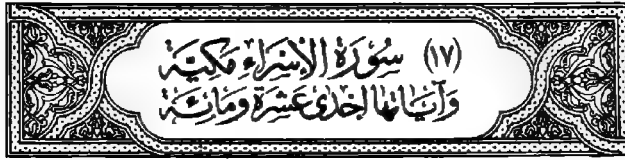 (١٧) سُورَة الإِسْرَاءِ مَكِيَّة
وَآيَاتُهَا إِحْدَىٰ عَشْرَة وَمَائَة